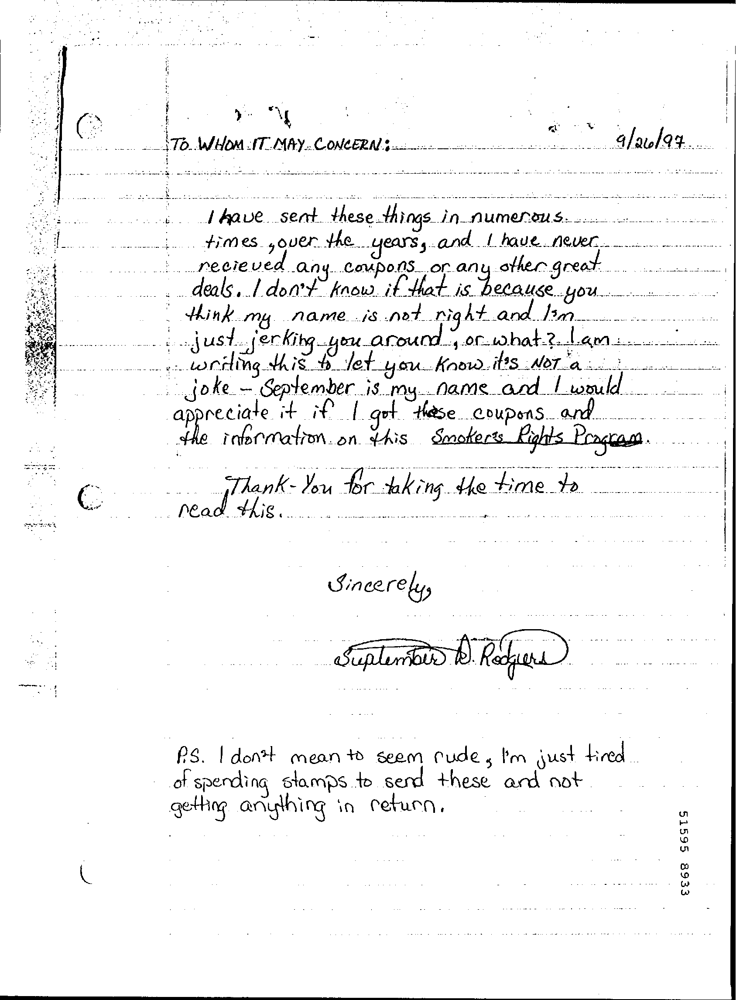 TO WHOM IT MAY CONCERN: 9/26/97
I have sent these things in numerous
times, over the years, and I have never
recieved any coupons or any other great
deals. I don't know if that is because you
think my name is not right and I'm
just jerking you around, or what? I am
writing this to let you know it's NOT a
joke - September is my name and I would
appreciate it if I got these coupons and
the information on this Smoker's Rights Program.
Thank-You for taking the time to
read this.
Sincerely,
September D. Rodgers
P.S. I don't mean to seem rude, I'm just tired
of spending stamps to send these and not
getting anything in return.
51595 8933